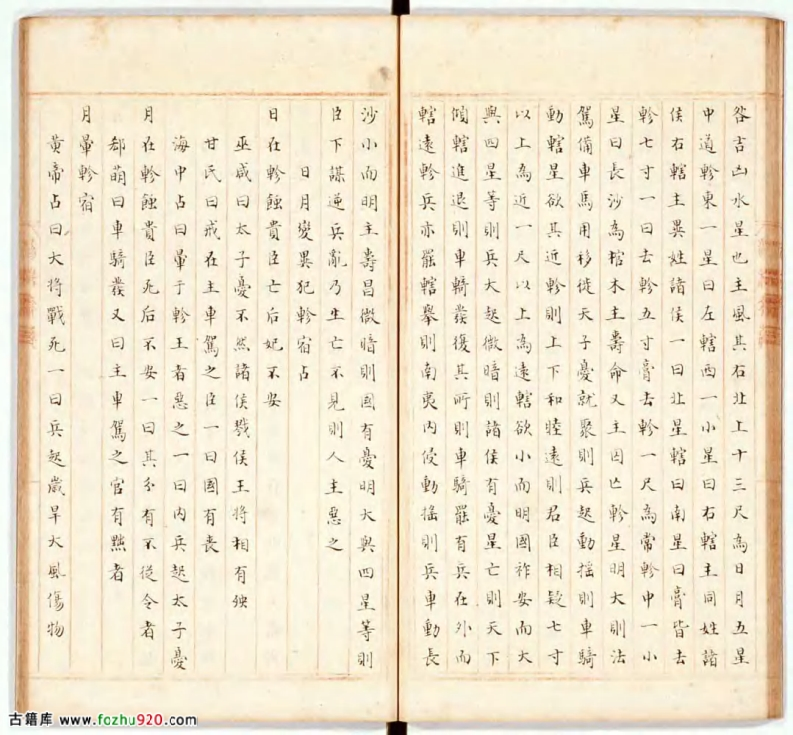 咎吉凶水星也主風其右北上十三尺為日月五星
中道軫東一星曰左轄西一小星曰右轄主同姓諸
侯右轄主異姓諸侯一曰北星轄曰南星曰膏皆去
軫七寸一曰去軫五寸膏去軫一尺為常軫中一小
星曰長沙為棺木主壽命又主囚亡軫星明大則法
駕備車馬用移徙天子憂就聚則兵起動搖則車騎
動轄星欲其近軫則上下和睦遠則君臣相疑七寸
以上為近一尺以上為遠轄欲小而明國祚安而大
與四星等則兵大起微暗則諸侯有憂星亡則天下
傾轄進退則車騎發復其所則車騎罷有兵在外而
轄遠軫兵亦罷轄舉則南夷內侵動搖則兵車動長
沙小而明主壽昌微暗則國有憂明大與四星等則
臣下謀逆兵亂乃生亡不見則人主惡之
日月變異犯軫宿占
日在軫蝕貴臣亡后妃不安
巫咸曰太子憂不然諸侯戮侯王將相有殃
甘氏曰戒在主車駕之臣一曰國有喪
海中占曰暈于軫王者惡之一曰內兵起太子憂
月在軫蝕貴臣死后不安一曰其分有不從令者
郄萌曰車騎發又曰主車駕之官有黜者
月暈軫宿
黃帝占曰大將戰死一曰兵起歲旱大風傷物
古籍库 www.fozhu920.com